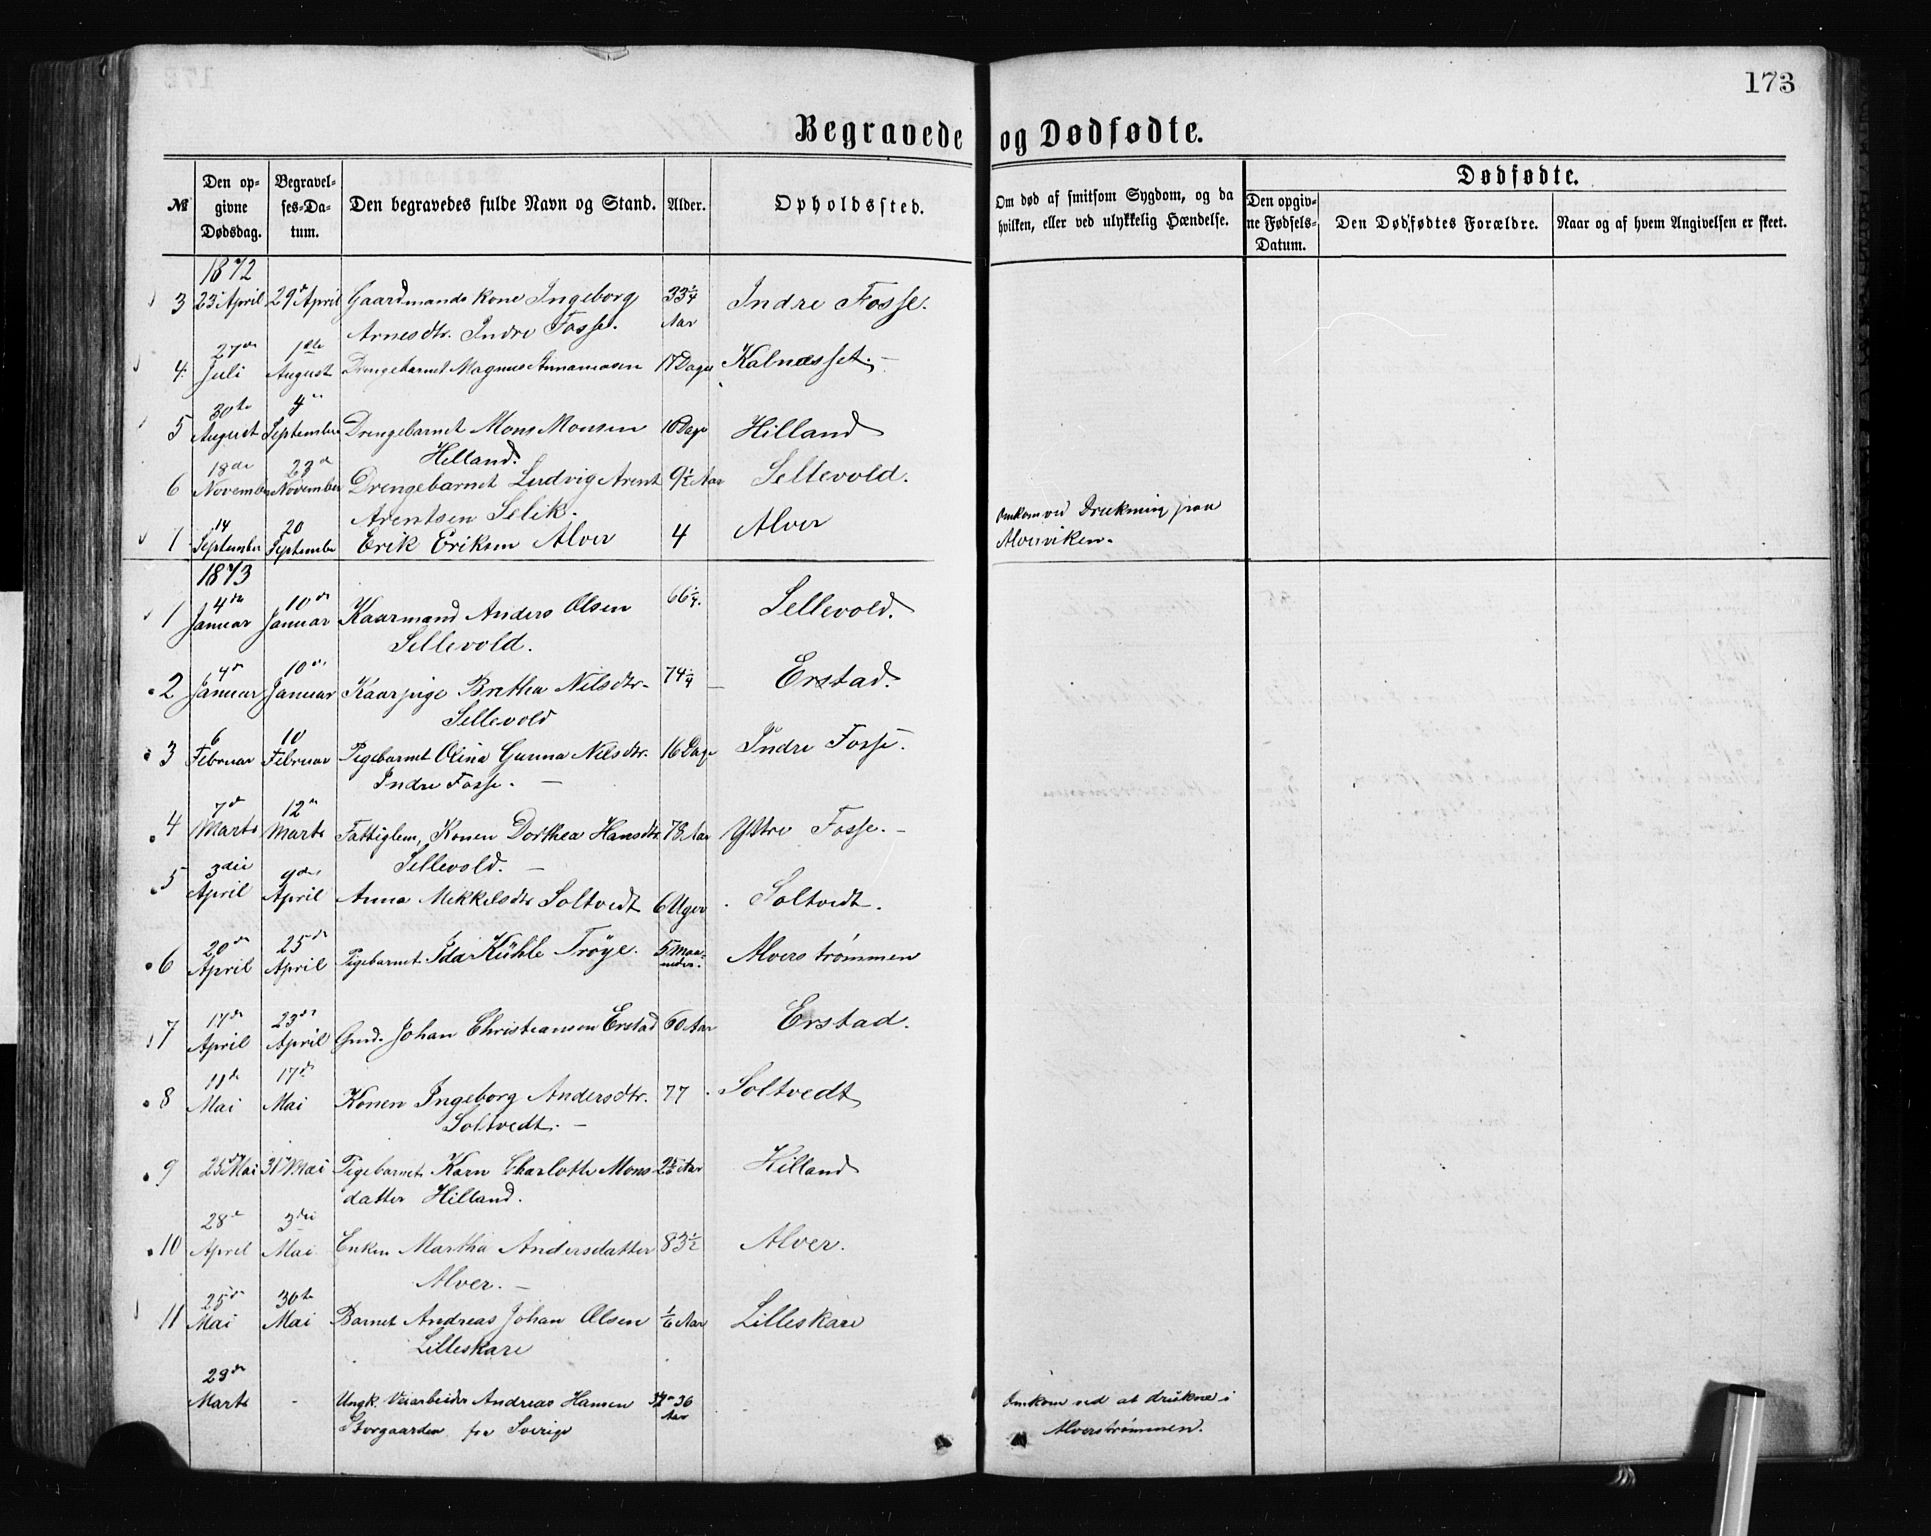 173
Begravede og Dødfødte.
№
Den opgivne Dødsdag.
Begravelses-Datum.
Den begravedes fulde Navn og Stand.
Alder.
Opholdssted.
Om død af smitsom Sygdom, og da hvilken, eller ved ulykkelig Hændelse.
Dødfødte.
Den opgivne Fødsels-Datum.
Den Dødfødtes Forældre.
Naar og af hvem Angivelsen er skeet.
1872
3 23 April 29 April Gaardmands kone Ingeborg 33 1/4 Aar Indre Fosse.
Arnesdtr. Indre Fosse.
4 27de Juli 1ste August Drengebarnet Magnus 17 Dage Kalnæsset. –
5 30te August 4de September Drengebarnet Mons Monsen 10 Dage Hilland
Hilland.
6 18de November 23de November Drengebarnet Ludvig Arent 9 1/2 Aar Sellevold.
Arentsen
1 14 September 20 September Erik Eriksen Alver 4 Alver Omkom ved Drukning paa
Alverviken.
1873
1 4de Januar 10de Januar Kaarmand Anders Olsen 66 1/4. Sellevold.
Sellevold.
2 4de Januar 10de Januar Kaarpige Bretha Nilsdtr. 74 1/4 – Erstad.
Sellevold
3 6 Februar 10 Februar Pigebarnet Olina Gurina Nilsdtr. 16 Dage Indre Fosse.
Indre Fosse. –
4 7de Marts 12te Marts Fattiglem, Konen Dorthea Hansdtr. 78 Aar Ystre Fosse. –
Sellevold. –
5 3die April 9de April Anna Mikkelsdtr Soltvedt 6 Uger Soltvedt.
6 20de April 25de April Pigebarnet Ida Kühle Trøye. 5 Maaneder. Alverstrømmen
7 17de April 23de April Gmd. Johan Christiansen Erstad 60 Aar Erstad.
8 11de Mai 17de Mai Konen Ingeborg Andersdtr. 77 Soltvedt
Soltvedt. –
9 25 Mai 31 Mai Pigebarnet Karn Charlotte Mons Aar Hilland
datter Hilland.
10 28de April 3die Mai Enken Martha Andersdatter 83 1/2 Alver.
Alver. –
11 25de Mai 30te Mai Barnet Andreas Johan Olsen 1/6 Aar Lilleskare
Lilleskare
29de Marts - Ungk. Veiarbeider Andreas Hansen 36 Aar Omkom ved at drukne i
Storgaarden fra Sverige Alverstrømmen.